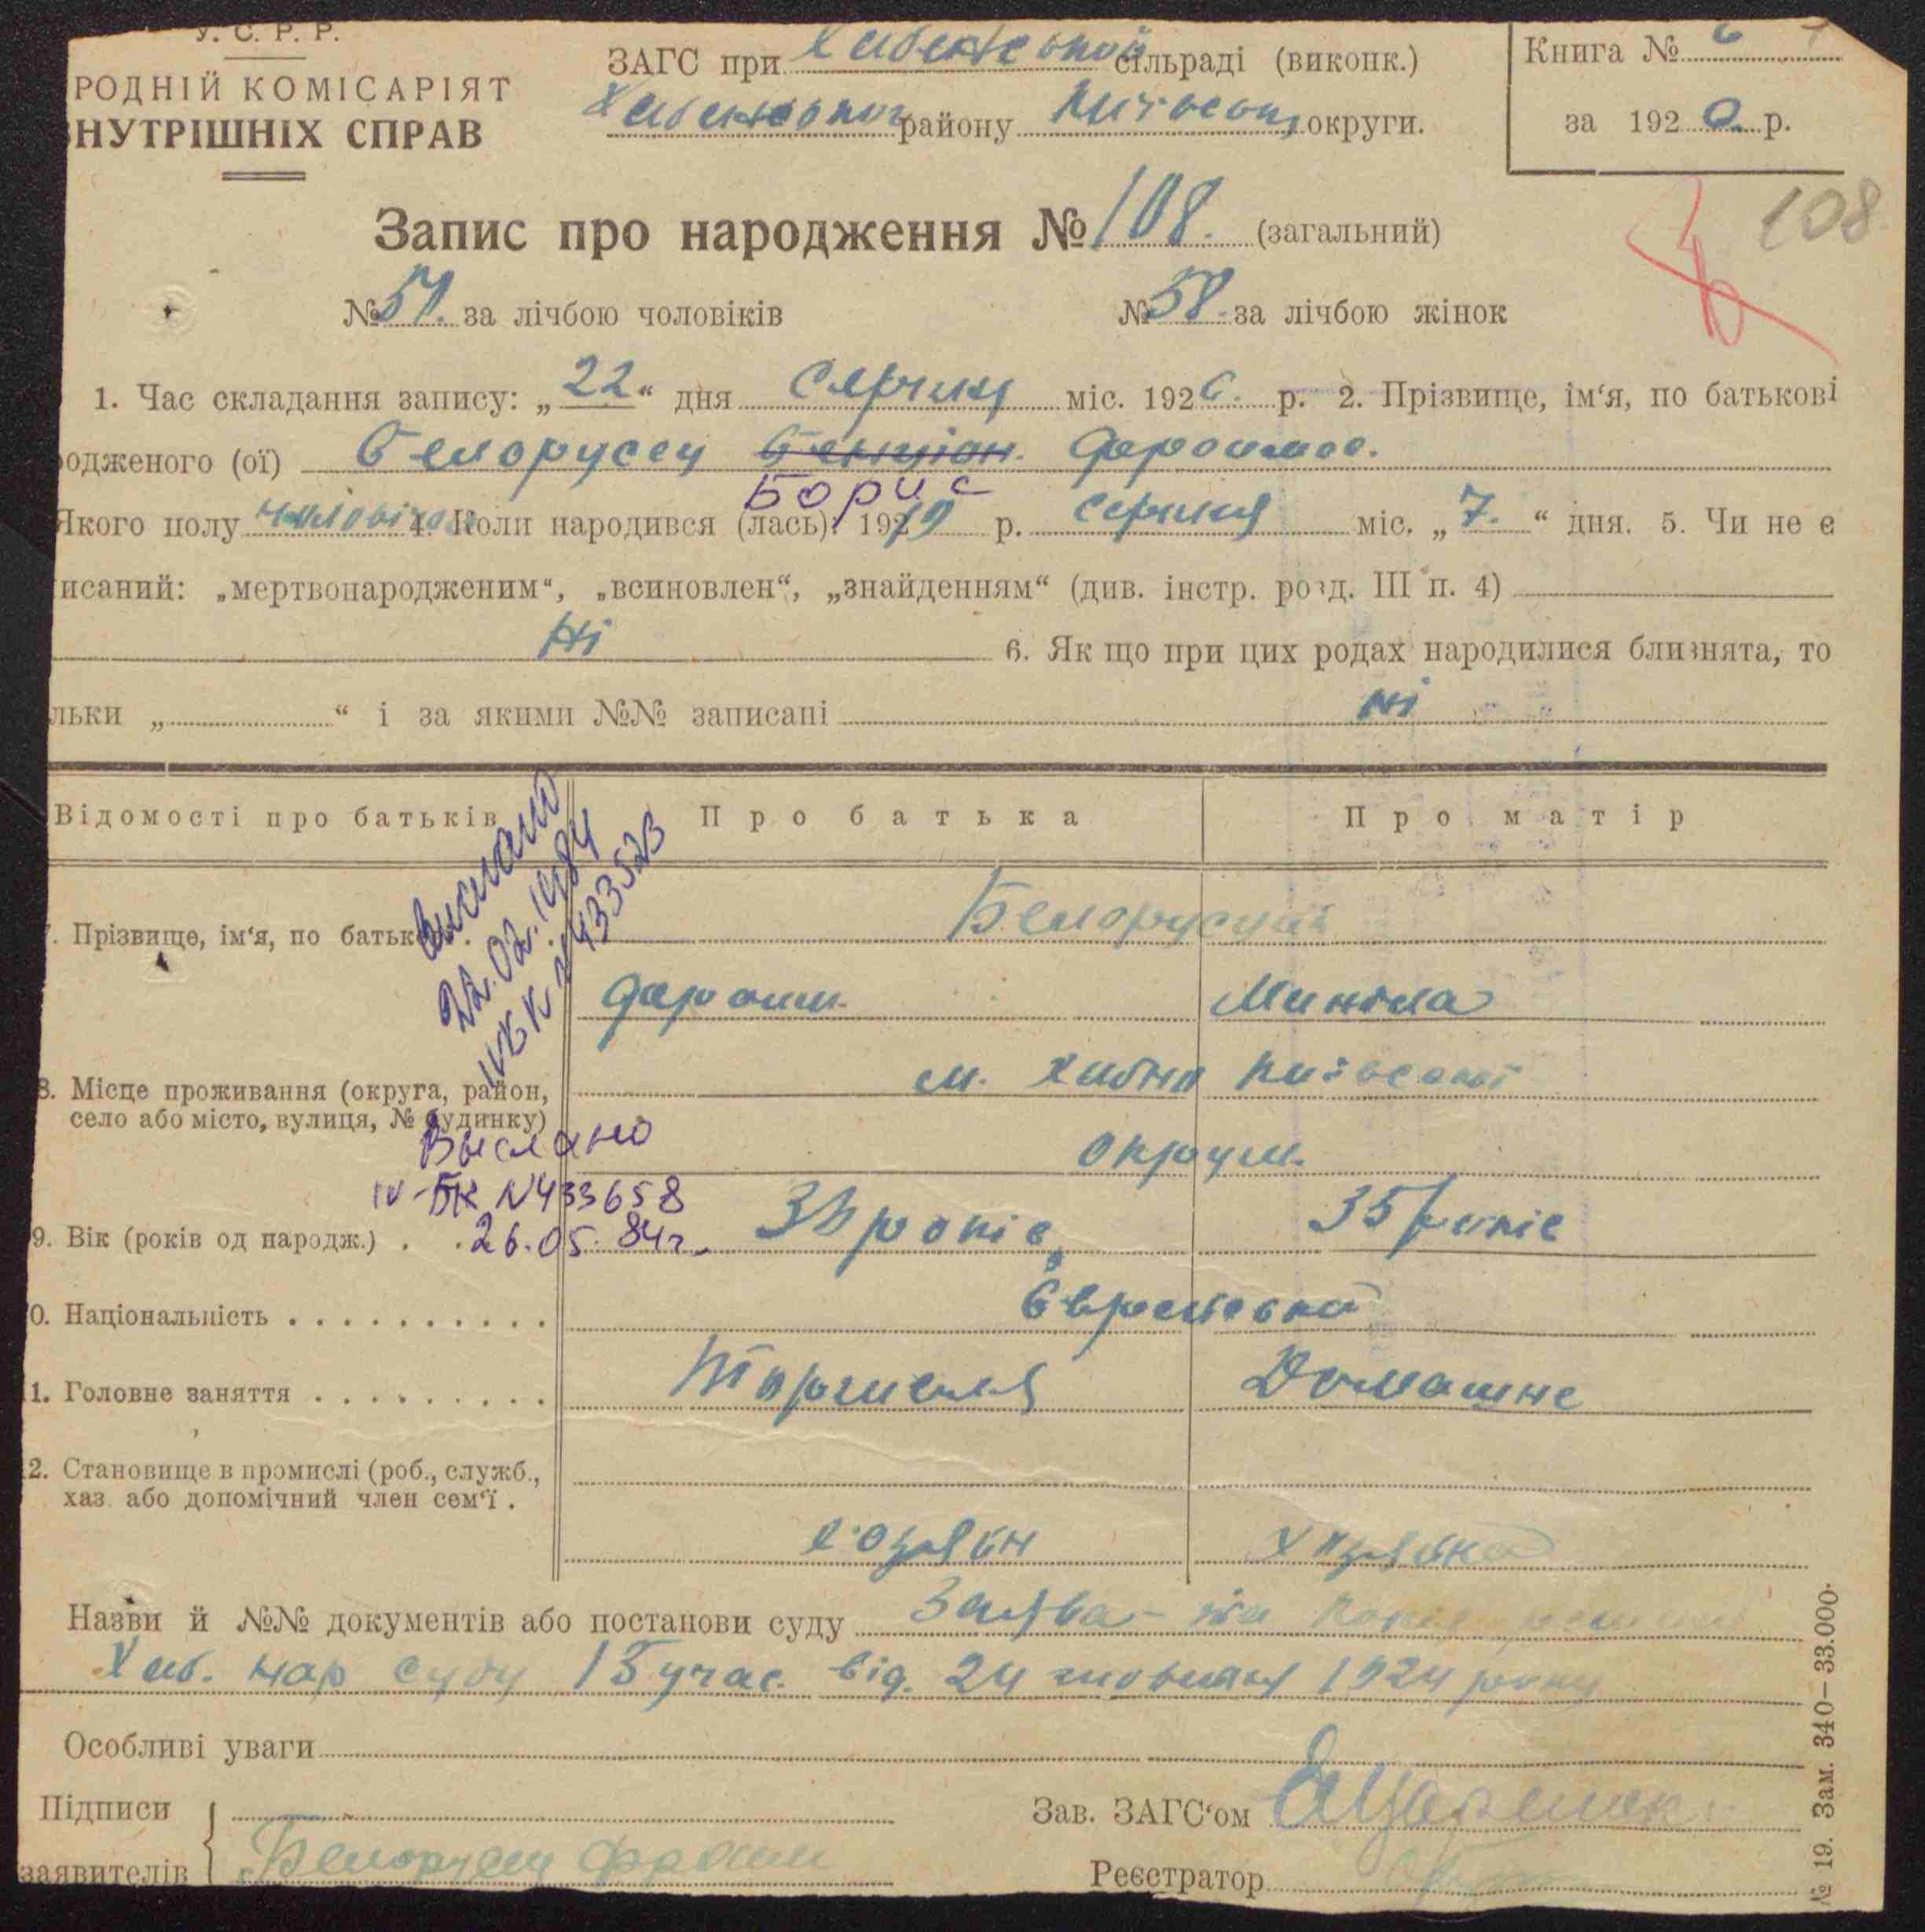 У. С. Р. Р.
РОДНІЙ КОМІСАРІЯТ
НУТРІШНІХ СПРАВ
ЗАГС при Хабенской сільраді (виконк.)
району Київськ округи.
Книга № 6
за 192 6. р.
108
Запис про народження № 108. (загальний)
№ за лічбою чоловіків № 58. за лічбою жінок
1. Час складання запису: „22“ дня Серпня міс. 1926. р. 2. Прізвище, ім‘я, по батькові
одженого (ої) Белорусец Бенціон.
Борис
Якого полу чоловічого 4. Коли народився (лась): 1919 р. серпня міс. „7.“ дня. 5. Чи не є
исаний: „мертвонародженим“, „всиновлен“, „знайденням“ (див. інстр. розд. III п. 4)
ні
6. Як що при цих родах народилися близнята, то
льки „ “ і за якими №№ записані ні
Відомості про батьків Про батька Про матір
Выслано
22.02.1984
IV БК N 433523
7. Прізвище, ім‘я, по батькові.
8. Місце проживання (округа, район,
село або місто, вулиця, № будинку)
м. Хабно Київської
округи.
Выслано
IV-БК N433658
26.05.84г.
9. Вік (років од народж.) . . років 35 років
0. Національність . . . . . . . . . . Єврейська
1. Головне заняття . . . . . . . . . Торгівля Домашнє
2. Становище в промислі (роб., служб.,
хаз. або допомічний член сем‘ї .
хозяїн хазяйка
Назви й №№ документів або постанови суду Заява -
Хаб. нар суду 15 учас. від. 24 жовтня 1924 року
Особливі уваги
Підписи
заявителів
Зав. ЗАГС‘ом
Реєстратор
№ 19. Зам. 340–33.000.